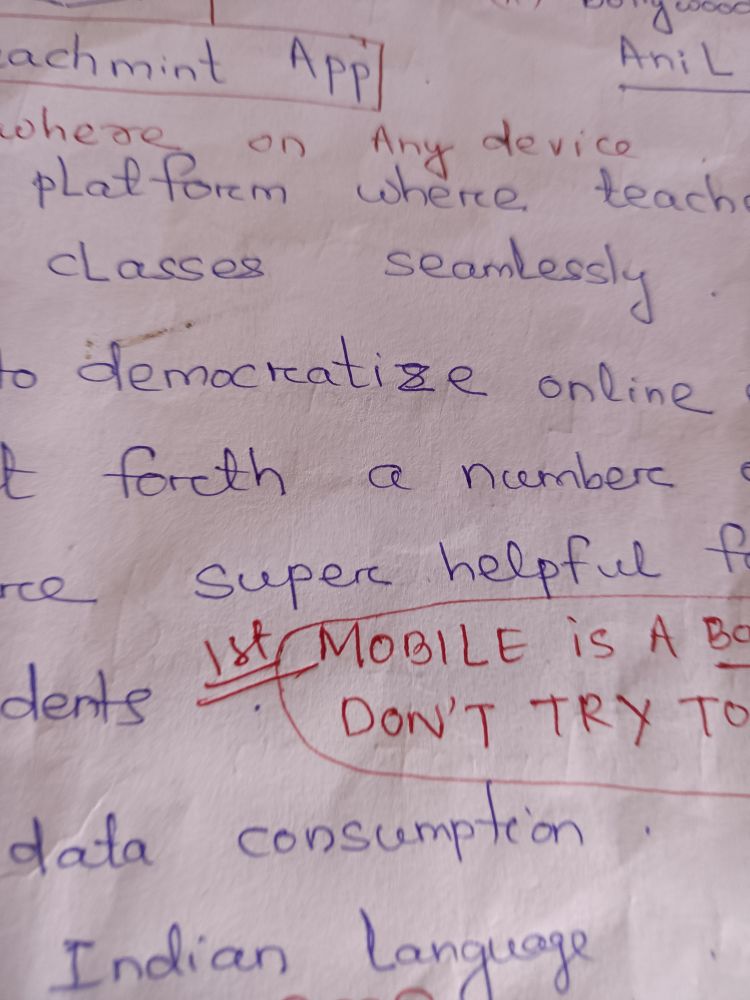 achmint App
AniL
where on Any device
platform where teach
classes seamlessly.
to democratize online
t forth a number
re super helpful f
1st MOBILE is A BO
dents.
DON'T TRY TO
data consumption.
Indian Language.